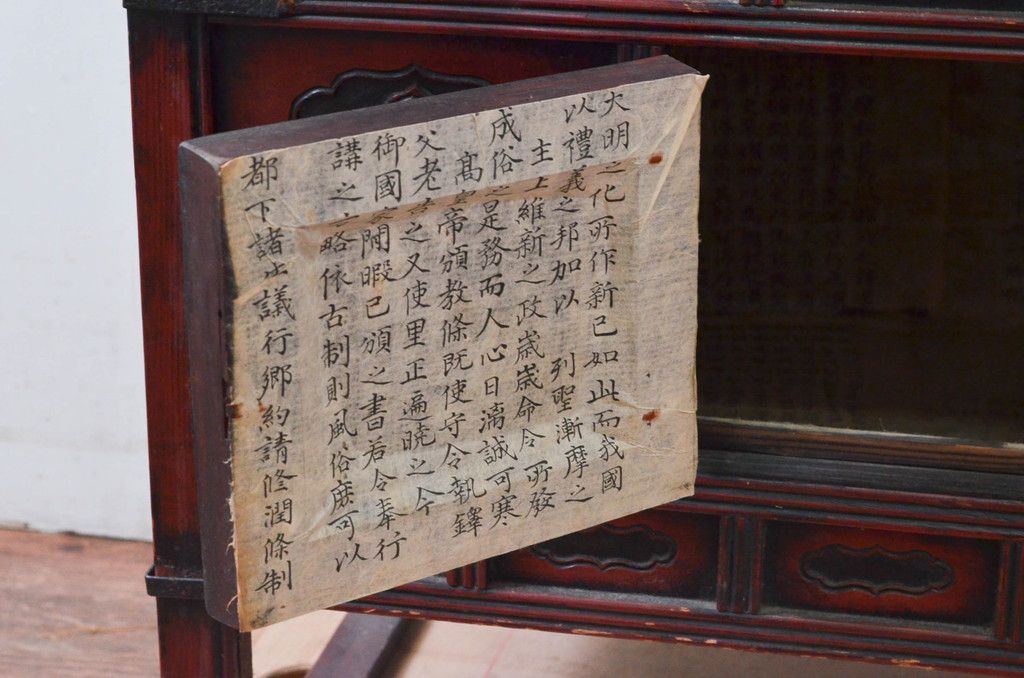 大明之化所作新已如此而我國
以禮義之邦加以 列聖漸摩之
主上維新之政歲歲命令所發
成俗之是務而人心日漓誠可寒
高皇帝頒教條既使守令執鐸
父老之又使里正遍曉之今
御國閒暇已頒之書若令奉行
講之略依古制則風俗庶可以
都下諸生議行鄉約請修潤條制